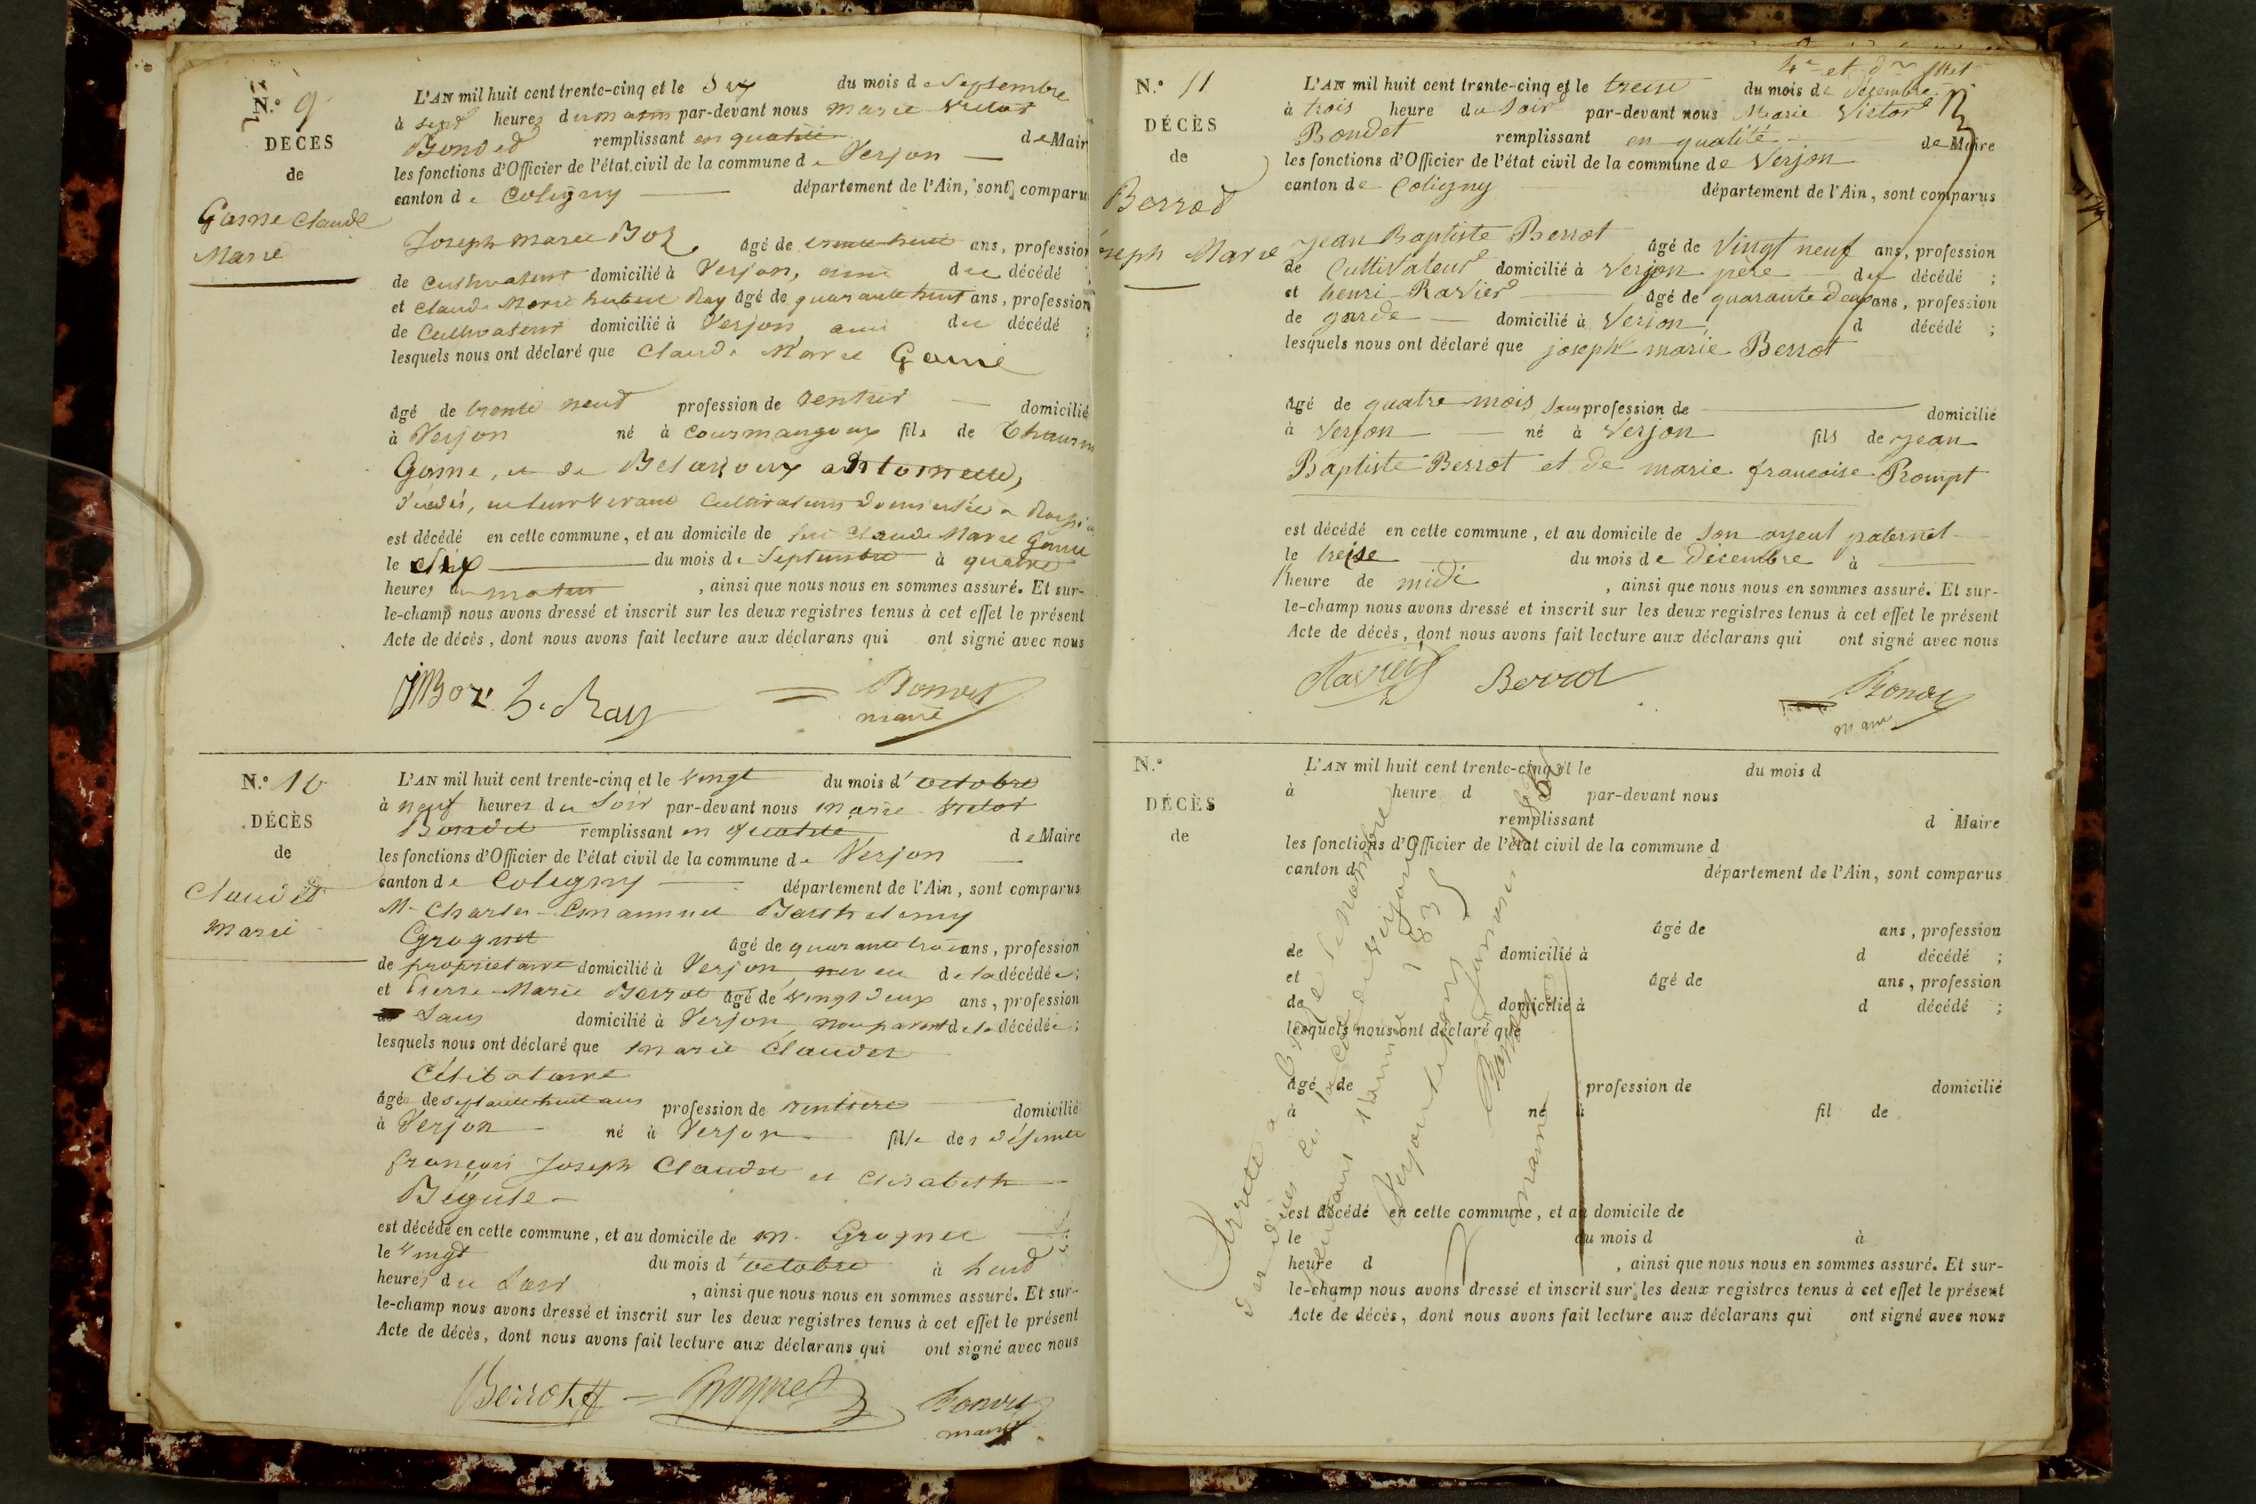 N.° 9
DÉCÈS
de
Gome Claude
Marie
L'AN mil huit cent trente-cinq et le Six du mois de Septembre
à sept heures du matin par-devant nous Marie Victor
Bondet remplissant en qualité de Mair
les fonctions d'Officier de l'état civil de la commune de Verjon
canton de Coligny département de l'Ain, sont comparu
Joseph Marie Boz âgé de trente huit ans, profession
de Cultivateur domicilié à Verjon, ami du décédé
et Claude Marie hubert Ray âgé de quarante huit ans, profession
de Cultivateur domicilié à Verjon, ami du décédé ;
lesquels nous ont déclaré que Claude Marie Gome
âgé de trente neuf profession de rentier domicilié
à Verjon né à Courmangoux fils de
Gome, et de antoinette,
Cultivateurs domiciliés à
est décédé en cette commune, et au domicile de feu Claude Marie Gome
le Six du mois de Septembre à quatre
heures du matin, ainsi que nous nous en sommes assuré. Et sur-
le-champ nous avons dressé et inscrit sur les deux registres tenus à cet effet le présent
Acte de décès, dont nous avons fait lecture aux déclarans qui ont signé avec nous
JM Boz h. Ray Bondet
maire
N.° 10
DÉCÈS
de
Claudet
Marie
L'AN mil huit cent trente-cinq et le vingt du mois d'octobre
à neuf heures du Soir par-devant nous Marie Victor
Bondet remplissant en qualité de Maire
les fonctions d'Officier de l'état civil de la commune de Verjon
canton de Coligny département de l'Ain, sont comparus
M. Charles Emannuel Barthelemy
Grognet âgé de quarante trois ans, profession
de proprietaire domicilié à Verjon, neveu de la décédée ;
et Pierre Marie Berrot âgé de vingt deux ans, profession
Sans domicilié à Verjon, non parent de la décédée ;
lesquels nous ont déclaré que Marie Claudet
Célibataire
âgée de septante huit ans profession de rentière domicilié
à Verjon né à Verjon fille des défunts
françois Joseph Claudet et Elisabeth
Bégule
est décédé en cette commune, et au domicile de M. Grognet
le vingt du mois d'octobre à huit
heures du Soir, ainsi que nous nous en sommes assuré. Et sur-
le-champ nous avons dressé et inscrit sur les deux registres tenus à cet effet le présent
Acte de décès, dont nous avons fait lecture aux déclarans qui ont signé avec nous
Berrot Grognet Bondet
maire
4e et dr
N.° 11
DÉCÈS
de
Berrod
oseph Marie
L'AN mil huit cent trente-cinq et le treise du mois de décembre
à trois heure du Soir par-devant nous Marie Victor
Bondet remplissant en qualité de Maire
les fonctions d'Officier de l'état civil de la commune de Verjon
canton de Coligny département de l'Ain, sont comparus
Jean Baptiste Berrot âgé de Vingt neuf ans, profession
de Cultivateur domicilié à Verjon père du décédé ;
et henri Ravier âgé de quarante deux ans, profession
de garde domicilié à Verjon, d décédé ;
lesquels nous ont déclaré que joseph marie Berrot
âgé de quatre mois sans profession de domicilié
à Verjon né à Verjon fils de Jean
Baptiste Berrot et de marie francoise Prompt
est décédé en cette commune, et au domicile de Son ayeul paternel
le treise du mois de décembre à
l'heure de midi, ainsi que nous nous en sommes assuré. Et sur-
le-champ nous avons dressé et inscrit sur les deux registres tenus à cet effet le présent
Acte de décès, dont nous avons fait lecture aux déclarans qui ont signé avec nous
Ravier Berrot Bondet
maire
N.°
DÉCÈS
de
L'AN mil huit cent trente-cinq et le du mois d
à heure d par-devant nous
remplissant d Maire
les fonctions d'Officier de l'état civil de la commune d
canton d département de l'Ain, sont comparus
âgé de ans, profession
de domicilié à d décédé ;
et âgé de ans, profession
de domicilié à d décédé ;
lesquels nous ont déclaré que
âgé de profession de domicilié
à né à fil de
est décédé en cette commune, et au domicile de
le du mois d à
heure d , ainsi que nous nous en sommes assuré. Et sur-
le-champ nous avons dressé et inscrit sur les deux registres tenus à cet effet le présent
Acte de décès, dont nous avons fait lecture aux déclarans qui ont signé avec nous
Arrêté à onze le nombre
des décès en la commune de Verjon
pendant l'année 1835
Verjon le Janvier 1836
Bondet
maire